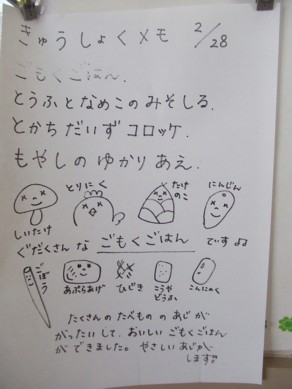 きゅうしょくメモ 2/28
ごもくごはん.
とうふとなめこのみそしる.
とかちだいずコロッケ.
もやしのゆかりあえ.
しいたけ とりにく たけのこ にんじん
ぐだくさんな ごもくごはん ですよ
ごぼう あぶらあげ ひじき こうやどうふ こんにゃく
たくさんのたべもののあじが
がったいして、おいしいごもくごはん
ができました。やさしいあじが
します。